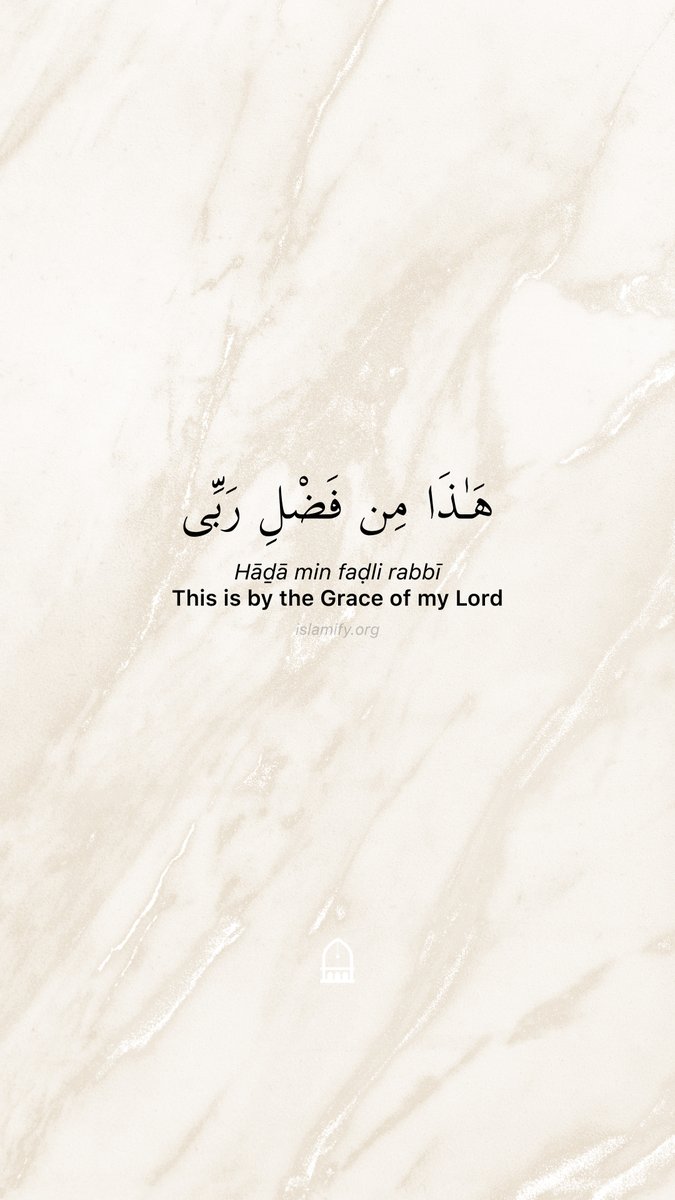 هَـٰذَا مِن فَضْلِ رَبِّى
Hāḏā min faḍli rabbī
This is by the Grace of my Lord
islamify.org